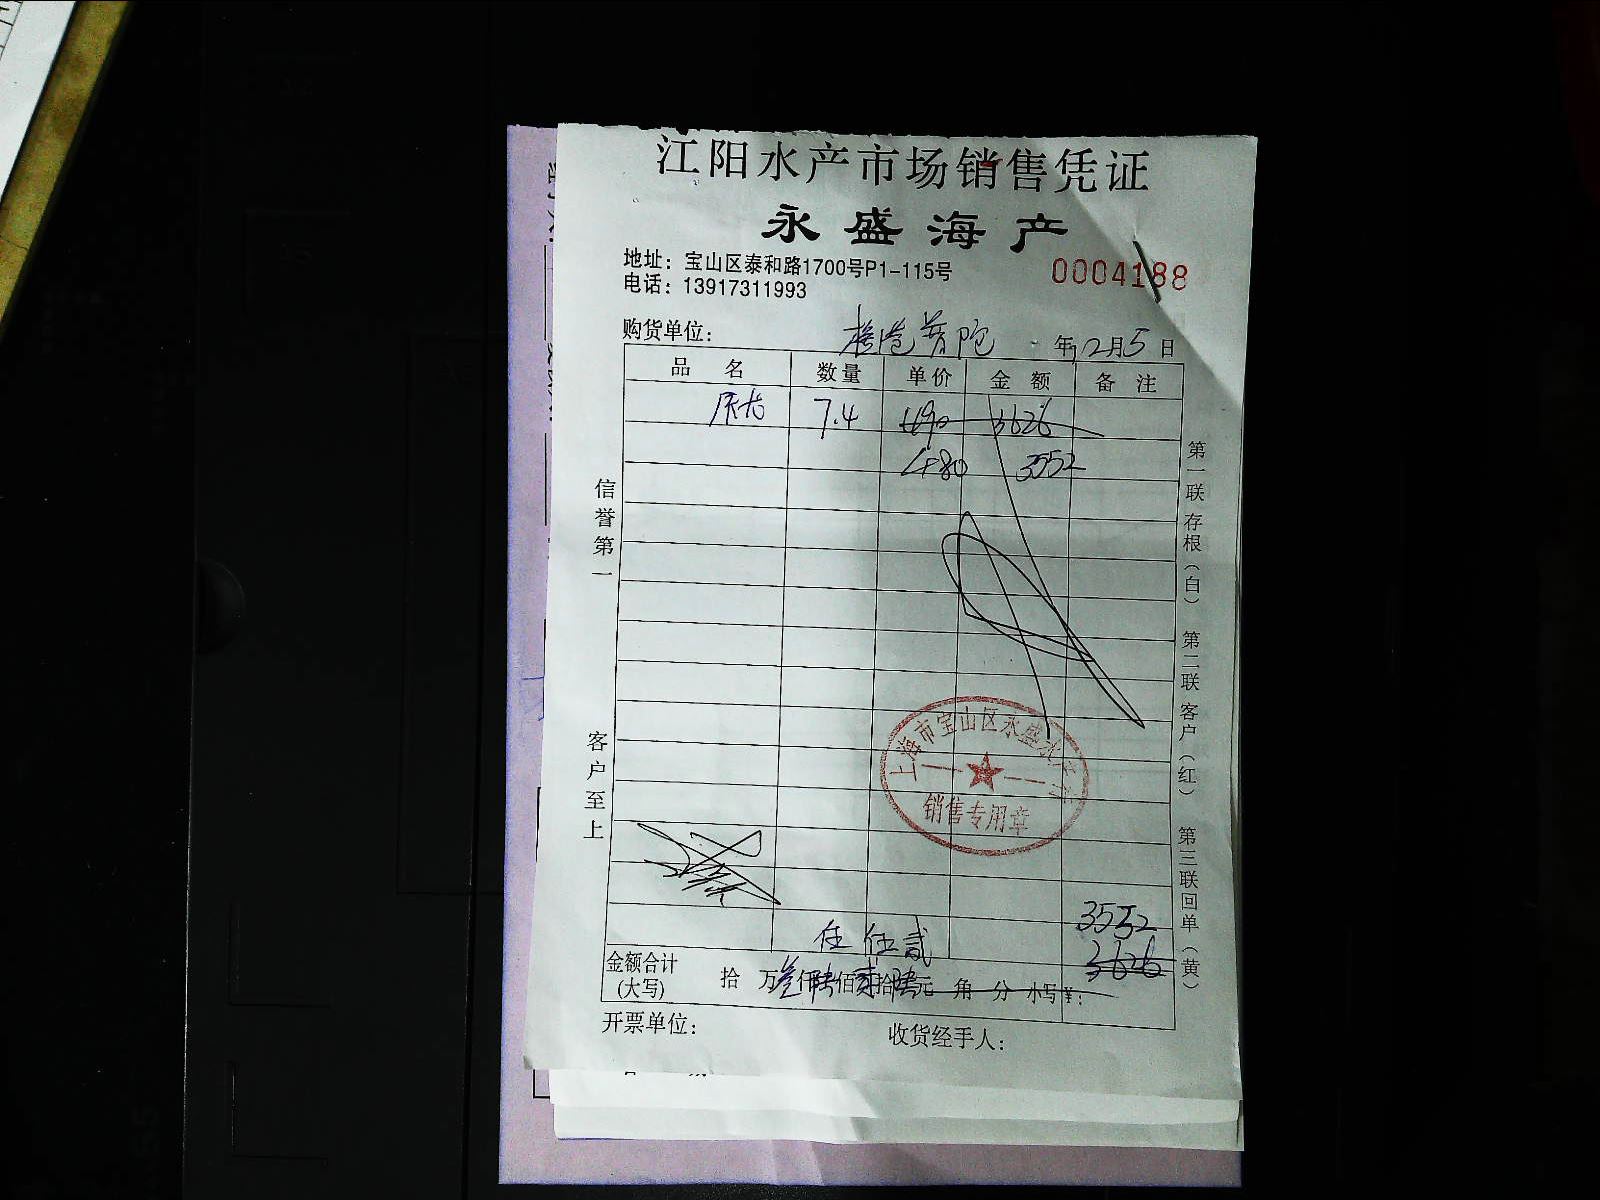 江阳水产市场销售凭证
永盛海产
地址：宝山区泰和路1700号P1-115号
0004188
电话：13917311993
购货单位：
年12月5日
品 名 数量 单价 金额 备注
7.4 490 3626
480 3552
信誉第一
客户至上
第一联存根（白） 第二联客户（红） 第三联回单（黄）
上海市宝山区永盛水产行
销售专用章
3552
伍 伍 贰
3626
金额合计
(大写)
拾 万叁仟陆佰贰拾陆元 角 分 小写¥：
开票单位： 收货经手人：